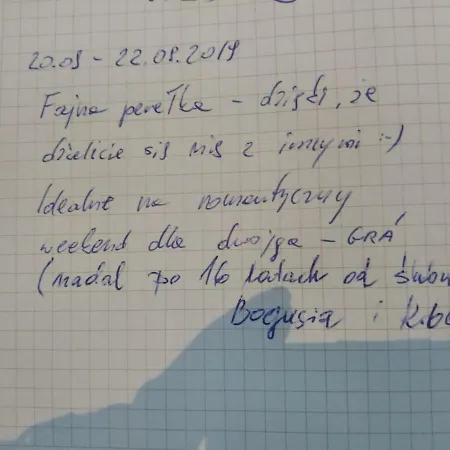 20.09 - 22.09.2019
Fajna perełka - dzięki, że
dzielicie się nią z innymi :-)
Idealne na romantyczny
weekend dla dwojga - GRA
(nadal po 16 latach od
Bogusia i